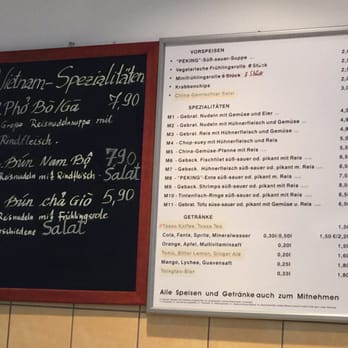 Vietnam-Spezialitäten
Phở Bò/Gà 7,90
Große Reisnudelnsuppe mit
Rindfleisch.
Bún Nam Bộ 7,90
Reisnudeln mit Rindfleisch - Salat
Bún chả Giò 5,90
Reisnudeln mit Frühlingsrolle
verschiedene Salat
VORSPEISEN
• "PEKING"-Süß-sauer-Suppe
• Vegetarische Frühlingsrolle Stück
• Minifrühlingsrolle 8 Stück
• Krabbenchips
• China-Gemischter Salat
SPEZIALITÄTEN
M1 - Gebrat. Nudeln mit Gemüse und Eier
M2 - Gebrat. Nudeln mit Hühnerfleisch und Gemüse
M3 - Gebrat. Reis mit Hühnerfleisch und Gemüse
M4 - Chop-suey mit Hühnerfleisch und Reis
M5 - China-Gemüse-Pfanne mit Reis
M6 - Geback. Fischfilet süß-sauer od. pikant m. Reis
M7 - Geback. Hühnerfleisch süß-sauer od. pikant m. Reis
M8 - "PEKING"-Ente süß-sauer od. pikant m. Reis
M9 - Geback. Shrimps süß-sauer od. pikant m. Reis
M10 - Tintenfisch-Ringe süß-sauer od. pikant m. Reis
M11 - Gebrat. Tofu süss-sauer od. pikant mit Gemüse u. Reis
GETRÄNKE
Tasse Kaffee, Tasse Tee
Cola, Fanta, Sprite, Mineralwasser 0,30l/0,50l 1,50 €/2,
Orange, Apfel, Multivitaminsaft 0,20l
Tonic, Bitter Lemon, Ginger Ale 0,20l
Mango, Lychee, Guavensaft 0,20l
Tsingtao-Bier
Alle Speisen und Getränke auch zum Mitnehmen